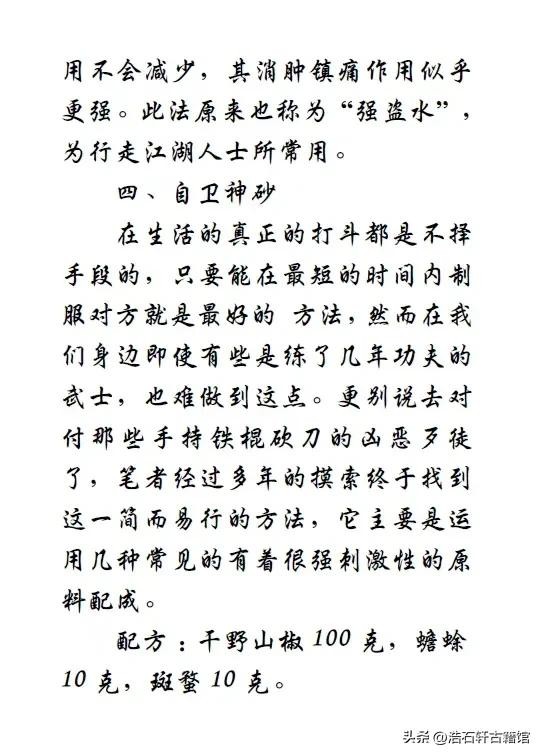 用不会减少，其消肿镇痛作用似乎
更强。此法原来也称为“强盗水”，
为行走江湖人士所常用。
四、自卫神砂
在生活的真正的打斗都是不择
手段的，只要能在最短的时间内制
服对方就是最好的 方法，然而在我
们身边即使有些是练了几年功夫的
武士，也难做到这点。更别说去对
付那些手持铁棍砍刀的凶恶歹徒
了，笔者经过多年的摸索终于找到
这一简而易行的方法，它主要是运
用几种常见的有着很强刺激性的原
料配成。
配方：干野山椒 100 克，蟾蜍
10 克，斑蝥 10 克。
头条 @浩石轩古籍馆